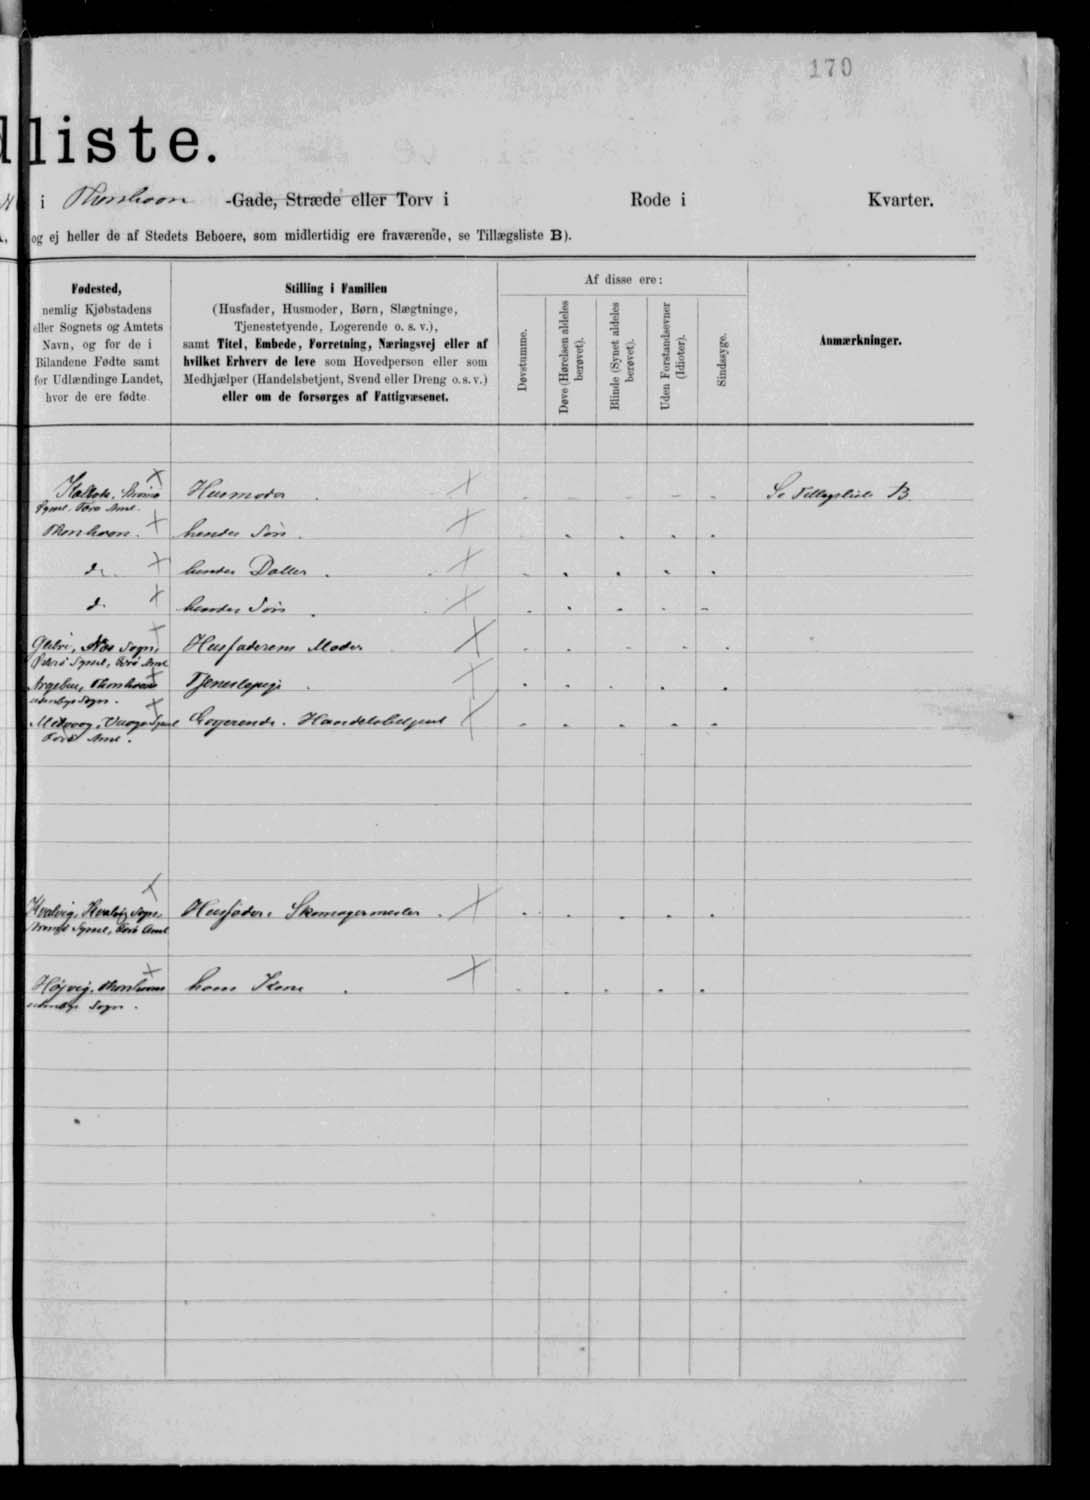 170
dliste.
i Thorshavn -Gade, Stræde eller Torv i Rode i Kvarter.
og ej heller de af Stedets Beboere, som midlertidig ere fraværende, se Tillægsliste B).
Fødested,
nemlig Kjøbstadens
eller Sognets og Amtets
Navn, og for de i
Bilandene Fødte samt
for Udlændinge Landet,
hvor de ere fødte.
Stilling i Familien
(Husfader, Husmoder, Børn, Slægtninge,
Tjenestetyende, Logerende o. s. v.),
samt Titel, Embede, Forretning, Næringsvej eller af
hvilket Erhverv de leve som Hovedperson eller som
Medhjælper (Handelsbetjent, Svend eller Dreng o. s. v.)
eller om de forsørges af Fattigvæsenet.
Af disse ere:
Døvstumme.
Døve (Hørelsen aldeles
berøvet).
Blinde (Synet aldeles
berøvet).
Uden Forstandsevner
(Idioter).
Sindssyge.
Anmærkninger.
Husmoder Se Tillægsliste B
Syssel, Færø Amt.
Thorshavn. hendes Søn
do. hendes Datter
do. hendes Søn
Glibri, Næs Sogn, Husfaderens Moder
Østerø Syssel, Færø Amt
Argebui, Thorshavn Tjenestepige
udenbys Sogn.
Midvaag, Vaagø Syssel Logerende. Handelsbetjent
Færø Amt.
Kvalvig, Kvalvig Sogn, Husfader, Skomagermester
Strømø Syssel, Færø Amt
Højvig, Thorshavns hans Kone
udenbys Sogn.